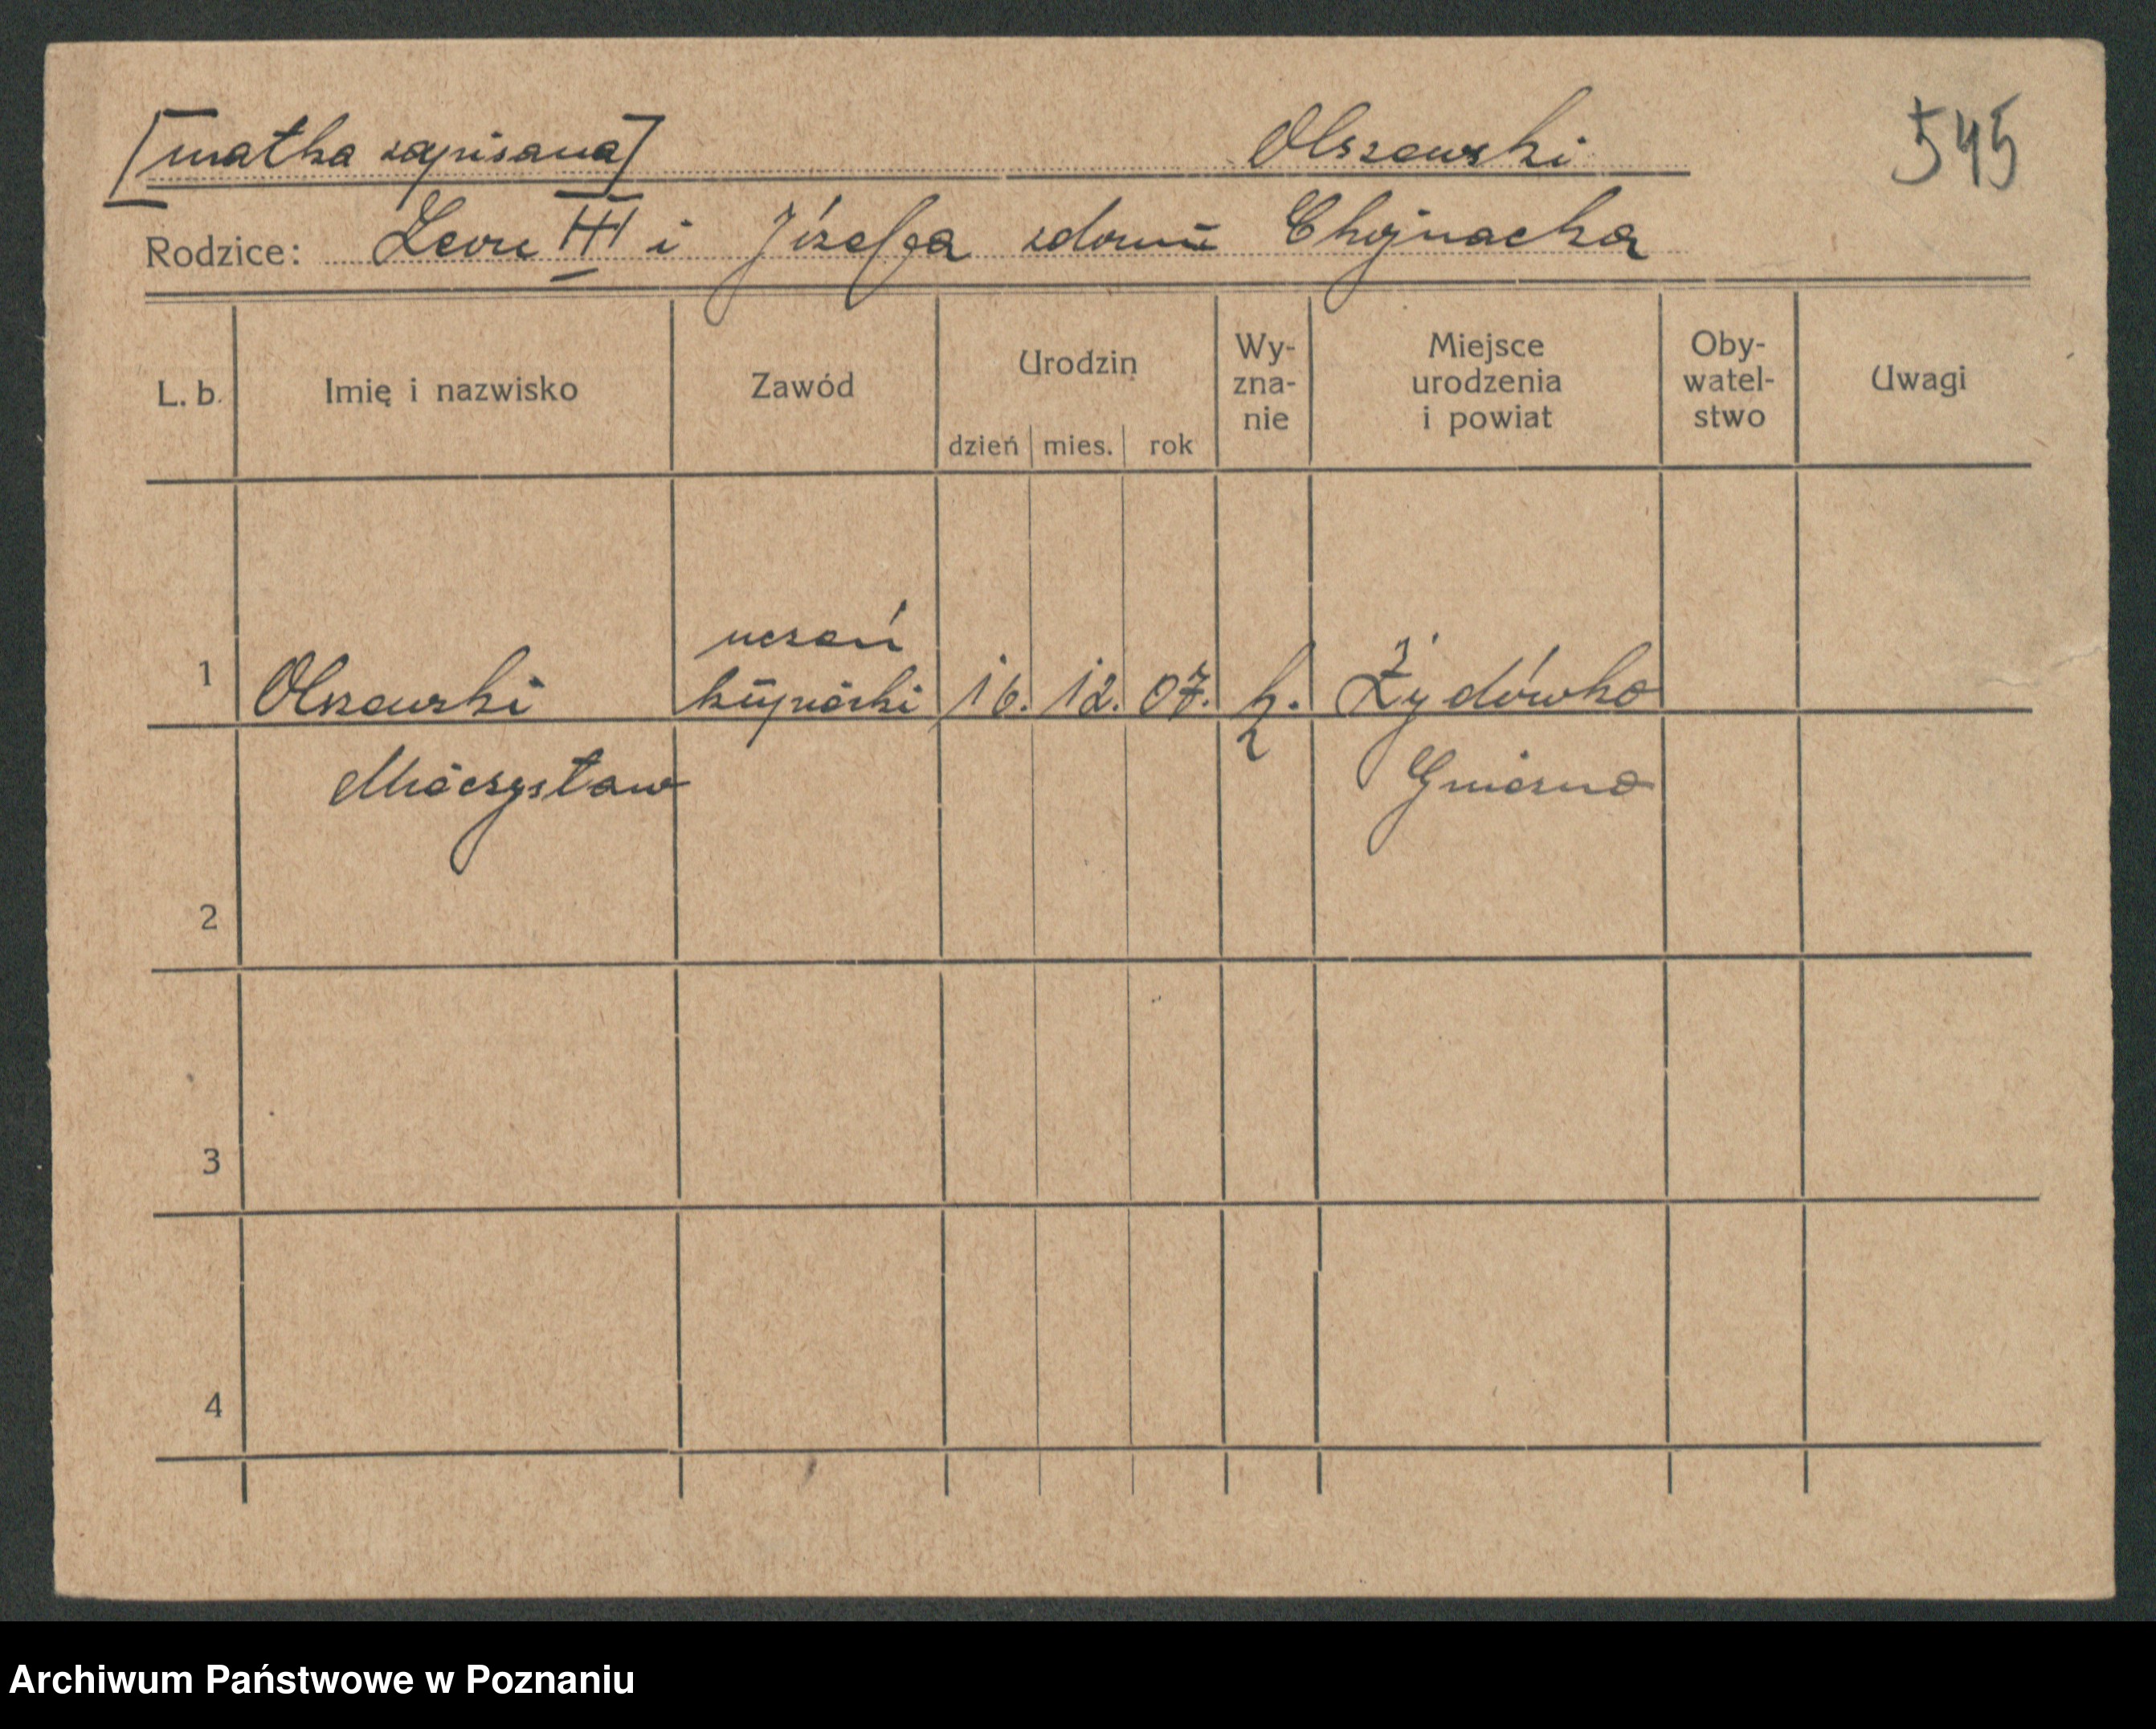 [matka zapisana] Olszewski 545
Rodzice: Leon III i Józefa zdomu Chojnacka
L. b. Imię i nazwisko Zawód Urodzin dzień mies. rok Wy-zna-nie Miejsce urodzenia i powiat Oby-watel-stwo Uwagi
uczeń
1 Olszewski kupiecki 16. 12. 07. k. Żydówko
Mieczysław Gniezno
2
3
4
Archiwum Państwowe w Poznaniu